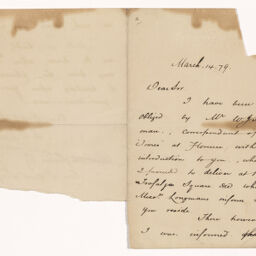 March. 14. 79.
Dear Sir
I have been
obliged by Mr. W.
man, Correspondent of
Times at Florence, with
introduction to you, wh
I promised to deliver at
Trafalgar Square
Messrs Longmans inform
you reside. There however
I was informed